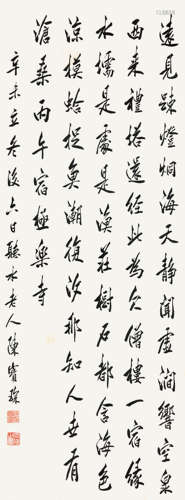 遠見疎燈烱海天靜聞虛澗響空泉
西來禮塔還經此為欠僧樓一宿緣
水是處是漁莊樹石都含海色
涼摸蛤捉魚潮復汐那知人世有
滄桑丙午宿極樂寺
辛未立冬後六日聽水老人陳寶琛